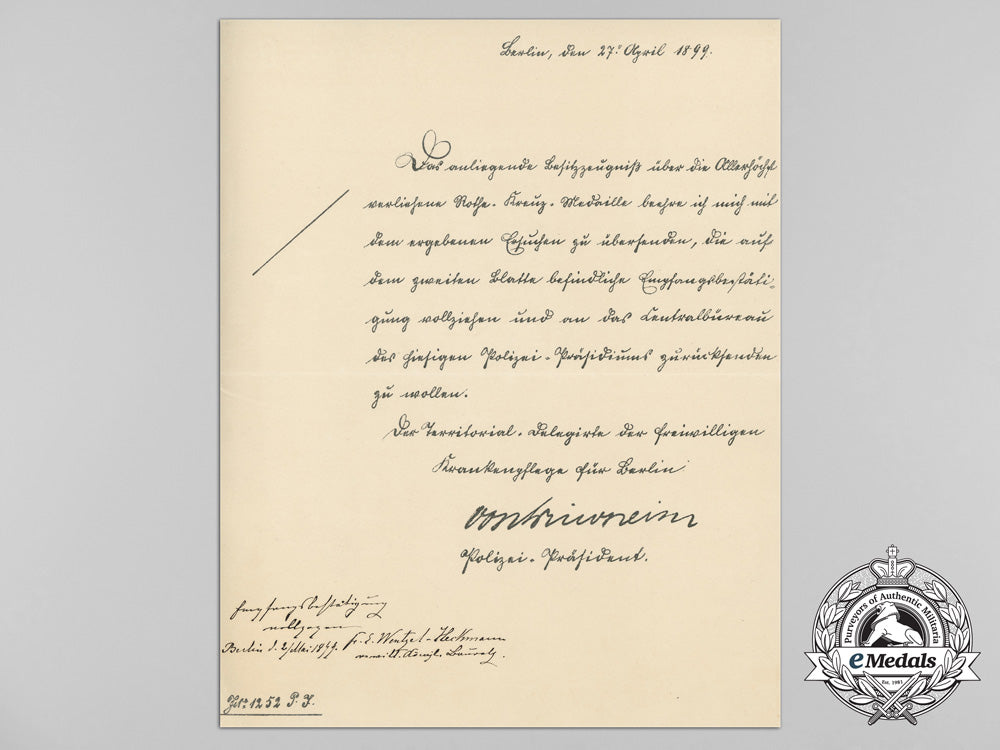 Berlin, den 27ᵗ April 1899.
Das anliegende Besitzzeugniß über die Allerhöchst
verliehene Rothe-Kreuz-Medaille beehre ich mich mit
dem ergebenen Ersuchen zu übersenden, die auf
dem zweiten Blatte befindliche Empfangsbestäti-
gung vollziehen und an das Centralbureau
des hiesigen Polizei-Präsidiums zurücksenden
zu wollen.
Der Territorial-Delegirte der freiwilligen
Krankenpflege für Berlin
von Windheim
Polizei-Präsident.
Empfangsbestätigung
vollzogen
Berlin d. 2 Mai 1899. Fr. E. Wentzel-Heckmann
verwitt. Königl. Baurath.
1252 P. J.
Purveyors of Authentic Militaria
eMedals
Est. 1981